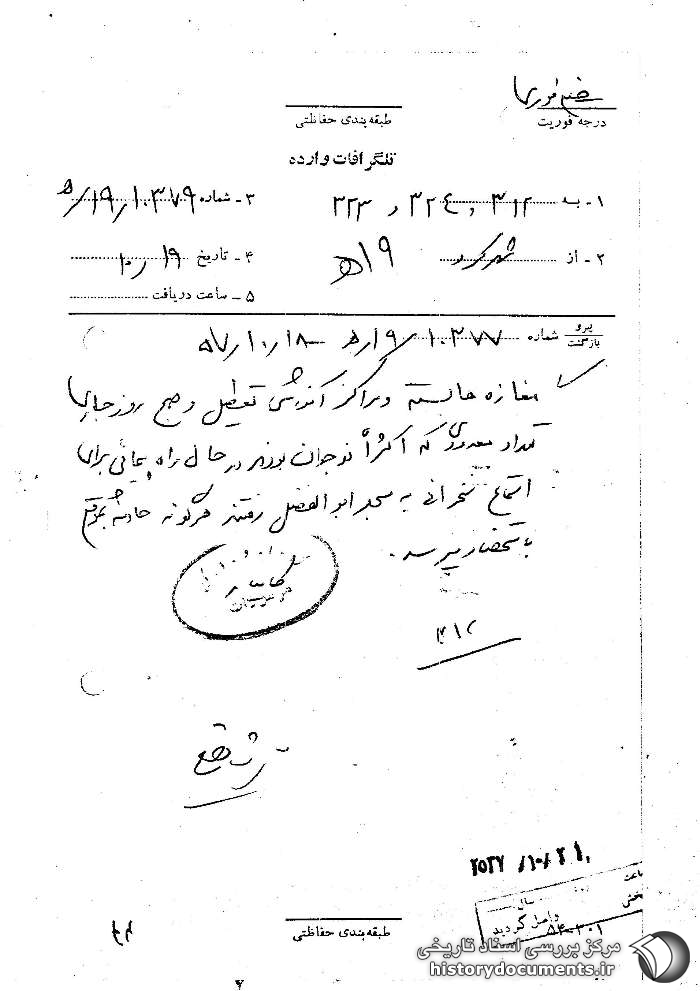 خیلی فوری
درجه فوریت
طبقه‌بندی حفاظتی
تلگرافات وارده
۱ـ به ۳۱۲ و ۳۲٤ و ۳۲۳
۳ـ شماره ۱۰۳۷۹ / ۱۹ ه
۲ـ از شهرکرد ۱۹ ه
۴ـ تاریخ ۱۹ / ۱۰
۵ـ ساعت دریافت
پیرو
بازگشت
شماره ۱۰۳۷۷ / ۱۹ ه ۱۸ / ۱۰ / ۵۷
مغازه ها بسته و مراکز آموزشی تعطیل و صبح روز جاری
تعداد معدودی که اکثراً نوجوان بودند در حال راه پیمائی برای
استماع سخنرانی به مسجد ابوالفضل رفتند هرگونه حادثه
باستحضار میرسد.
۳۱۲
۲۵۳۷ /۱۰/ ۲۱
ساعت
بخشی
سال
واصل گردید
طبقه‌بندی حفاظتی
مرکز بررسی اسناد تاریخی
historydocuments.ir